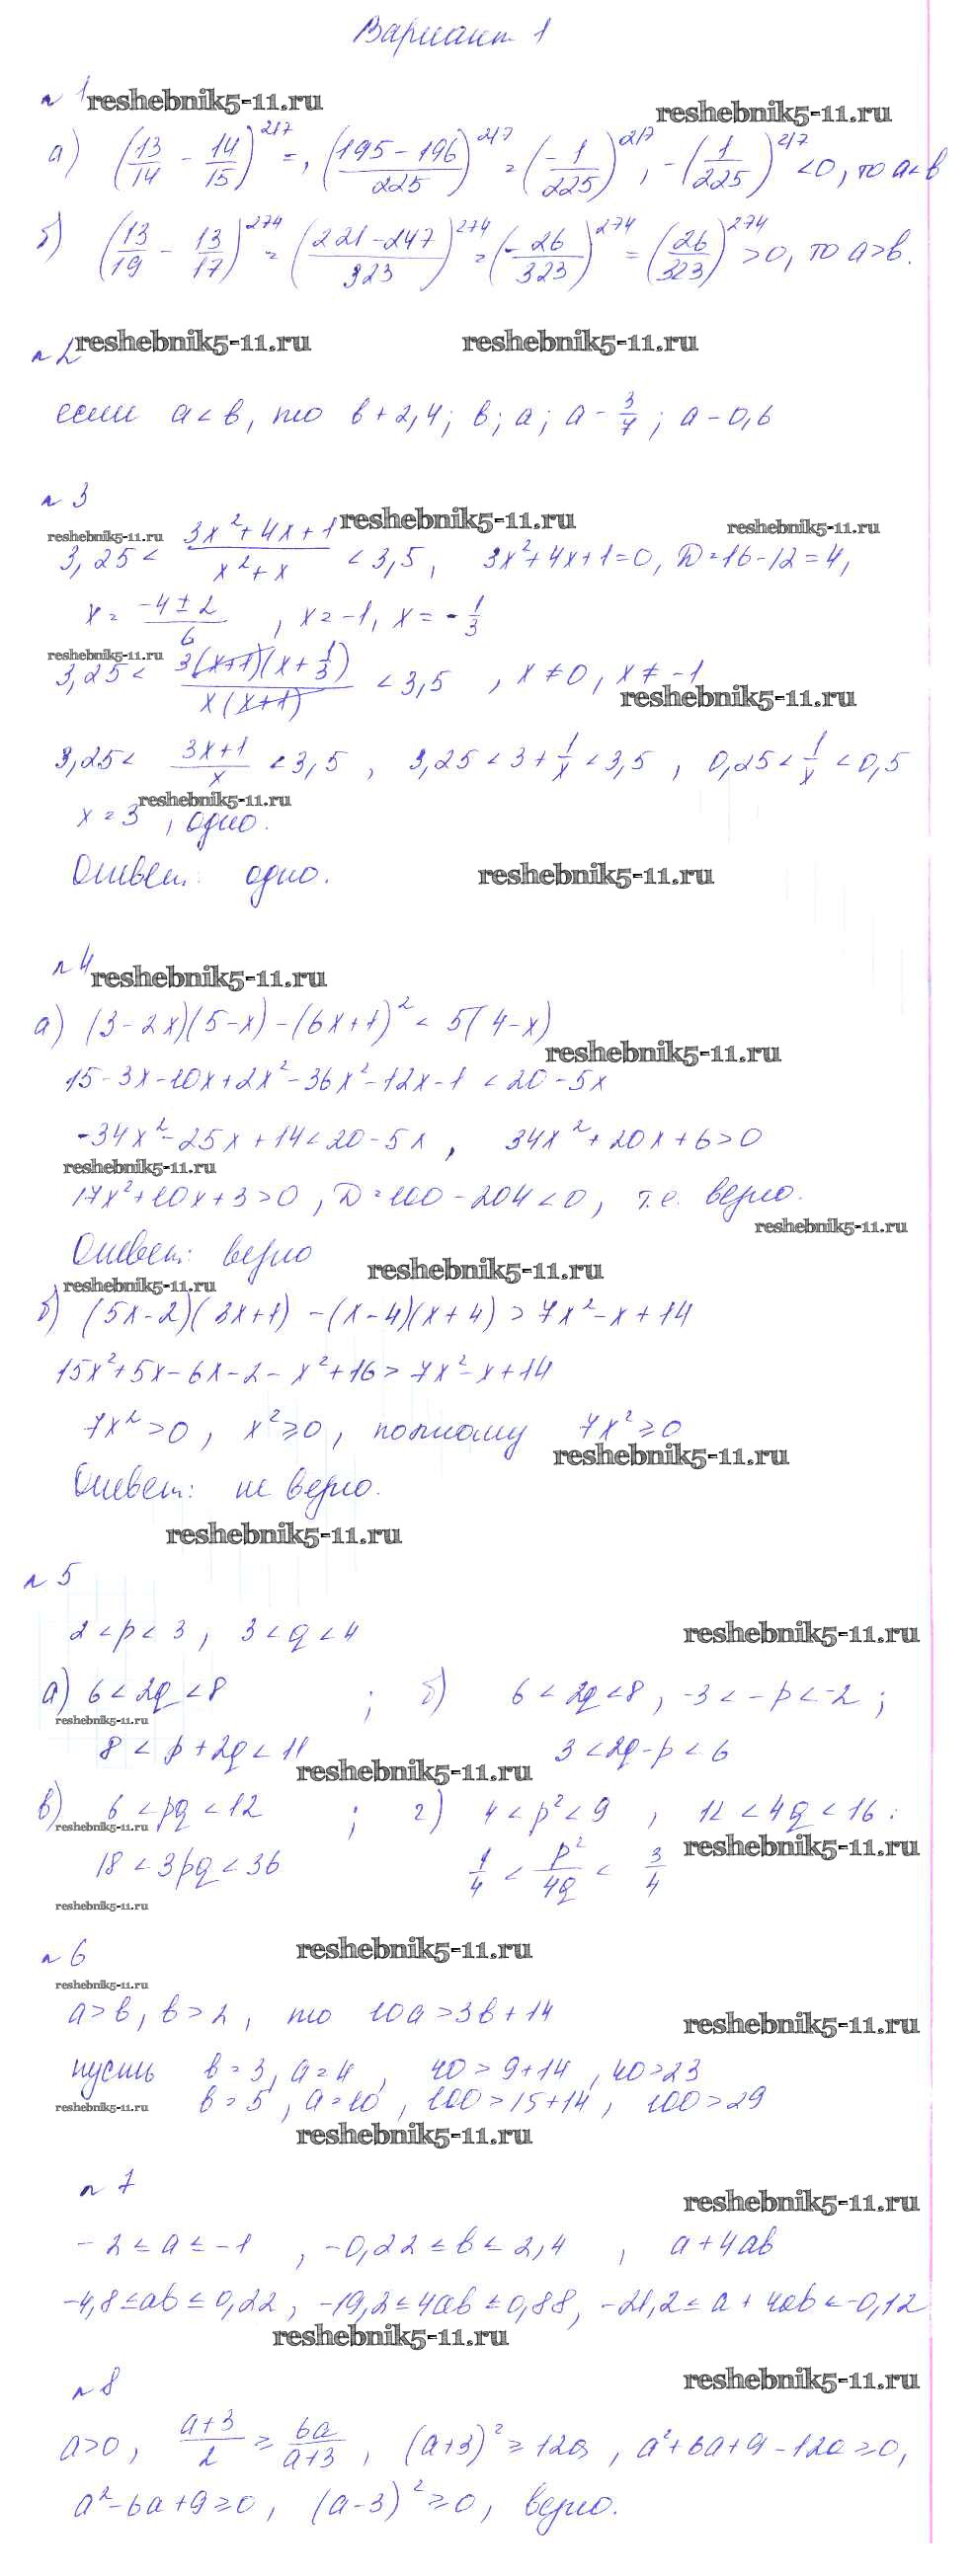 Вариант 1
№ 1 reshebnik5-11.ru
reshebnik5-11.ru
а) (13/14 - 14/15)^217 =, ((195-196)/225)^217 = (-1/225)^217, -(1/225)^217 <0, то a<b
б) (13/19 - 13/17)^274 = ((221-247)/323)^274 = (-26/323)^274 = (26/323)^274 >0, то a>b.
№ 2 reshebnik5-11.ru reshebnik5-11.ru
если a<b, то b+2,4; b; a; a-3/7; a-0,6
№ 3
reshebnik5-11.ru reshebnik5-11.ru reshebnik5-11.ru
3,25 < (3x²+4x+1)/(x²+x) <3,5, 3x²+4x+1=0, D=16-12=4,
x= (-4±2)/6, x=-1, x=-1/3
reshebnik5-11.ru
3,25< 3(x+1)(x+1/3)/(x(x+1)) <3,5, x≠0, x≠-1
reshebnik5-11.ru
3,25< (3x+1)/x <3,5, 3,25<3+1/x<3,5, 0,25<1/x<0,5
reshebnik5-11.ru
x=3, одно.
Ответ: одно. reshebnik5-11.ru
№ 4 reshebnik5-11.ru
а) (3-2x)(5-x)-(6x+1)²<5(4-x)
reshebnik5-11.ru
15-3x-10x+2x²-36x²-12x-1<20-5x
-34x²-25x+14<20-5x, 34x²+20x+6>0
reshebnik5-11.ru
17x²+10x+3>0, D=100-204<0, т.е. верно.
reshebnik5-11.ru
Ответ: верно
reshebnik5-11.ru
reshebnik5-11.ru
б) (5x-2)(3x+1)-(x-4)(x+4)>7x²-x+14
15x²+5x-6x-2-x²+16>7x²-x+14
7x²>0, x²≥0, поэтому 7x²≥0
reshebnik5-11.ru
Ответ: не верно.
reshebnik5-11.ru
№ 5
2<p<3, 3<q<4 reshebnik5-11.ru
а) 6<2q<8; б) 6<2q<8, -3<-p<-2;
reshebnik5-11.ru
8<p+2q<11 3<2q-p<6
reshebnik5-11.ru
в) 6<pq<12; г) 4<p²<9, 12<4q<16:
reshebnik5-11.ru reshebnik5-11.ru
18<3pq<36 1/4<p²/4q<3/4
reshebnik5-11.ru
№ 6 reshebnik5-11.ru
reshebnik5-11.ru
a>b, b>2, то 10a>3b+14
reshebnik5-11.ru
пусть b=3, a=4, 40>9+14, 40>23
reshebnik5-11.ru b=5, a=10, 100>15+14, 100>29
reshebnik5-11.ru
№ 7
reshebnik5-11.ru
-2≤a≤-1, -0,22≤b≤2,4, a+4ab
-4,8≤ab≤0,22, -19,2≤4ab≤0,88, -21,2≤a+4ab<-0,12
reshebnik5-11.ru
№ 8 reshebnik5-11.ru
a>0, (a+3)/2 ≥ 6a/(a+3), (a+3)²≥12a, a²+6a+9-12a≥0,
a²-6a+9≥0, (a-3)²≥0, верно.